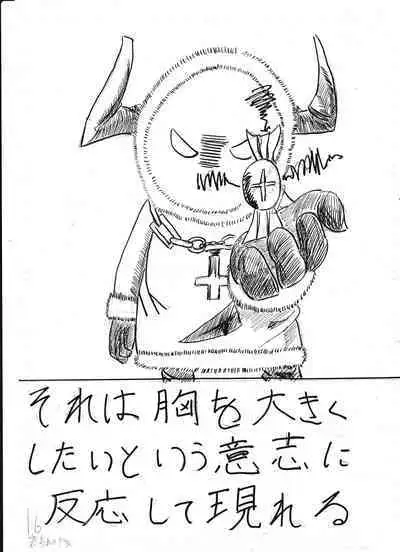 それは胸を大きく
したいという意志に
反応して現れる
16